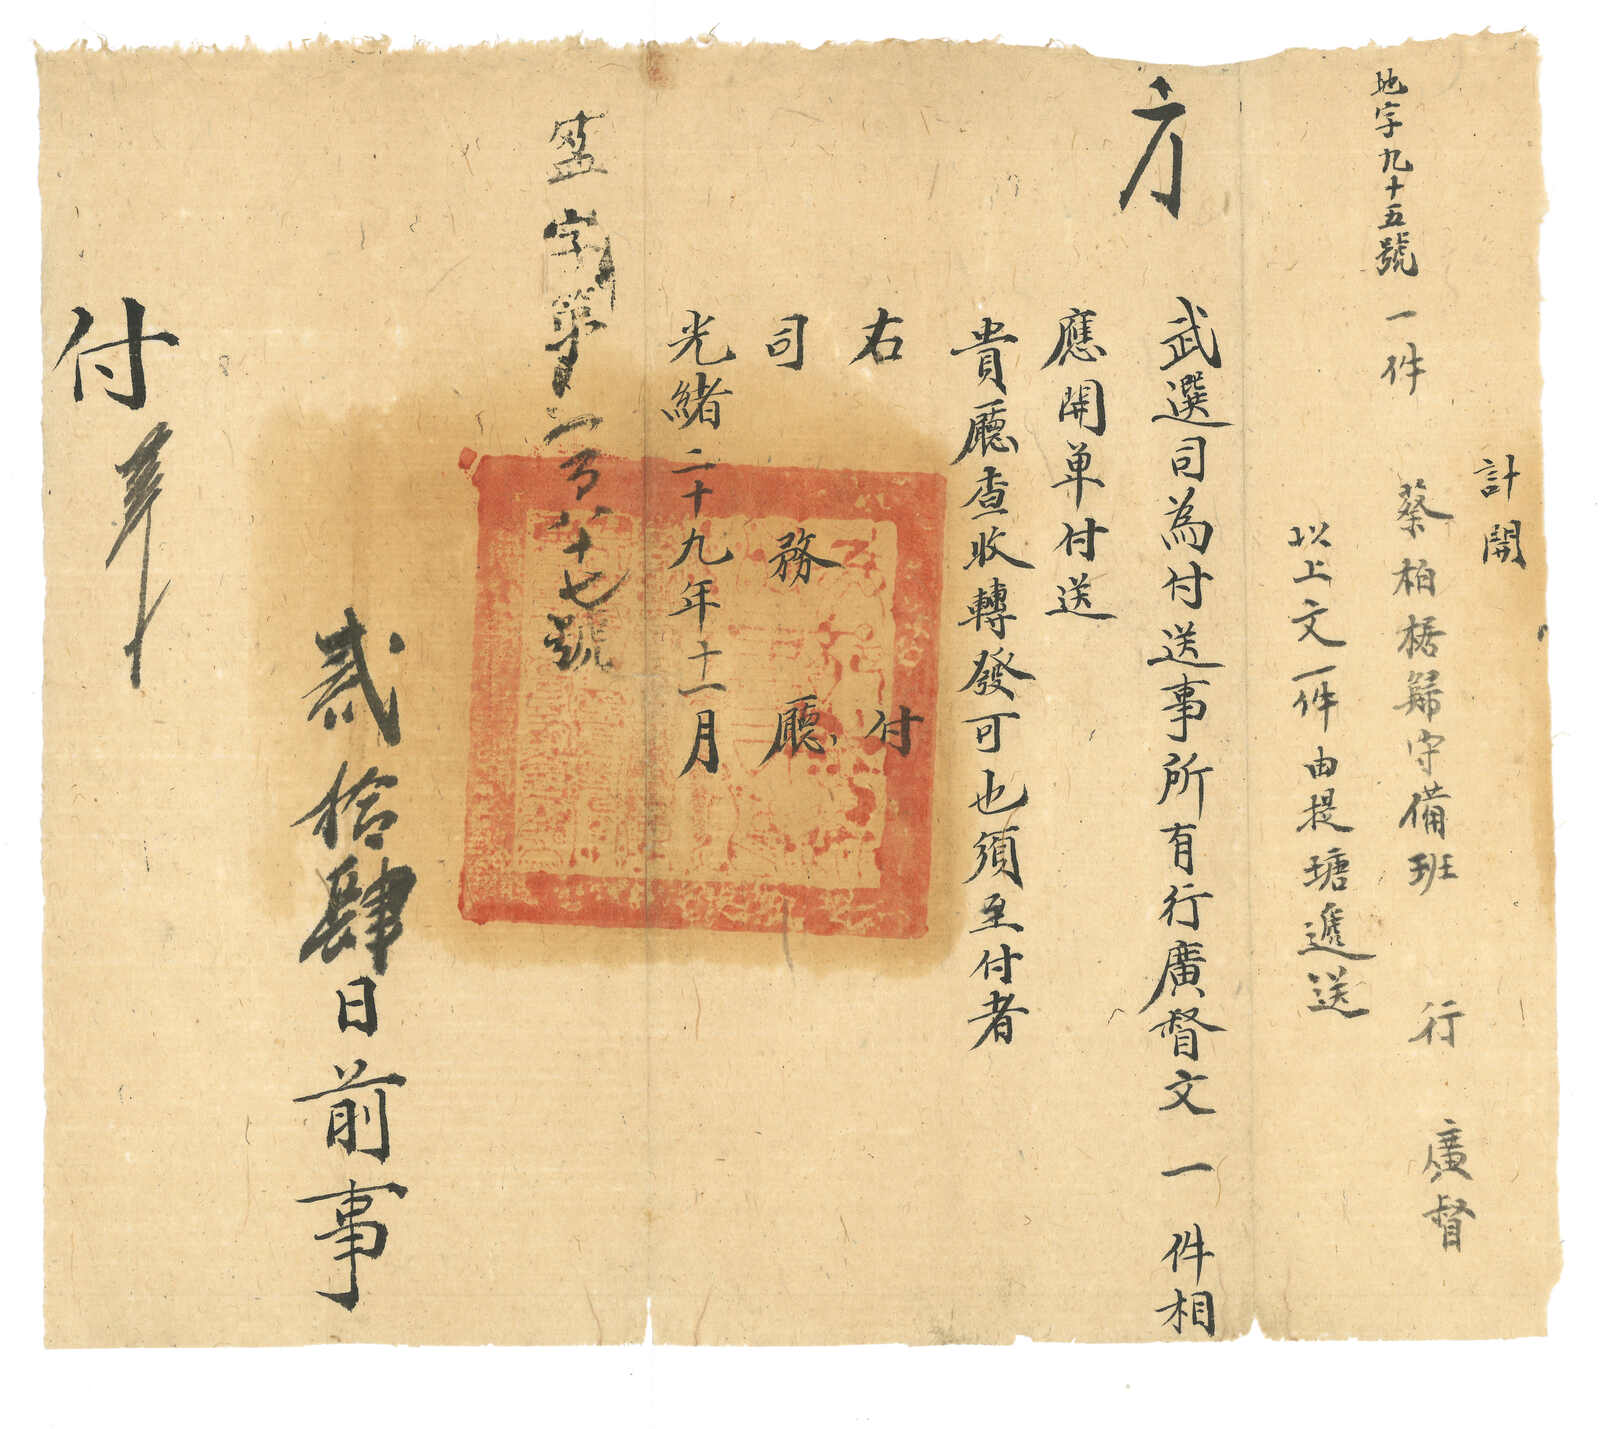 計開
地字九十五號 一件 蔡柏梧歸守備班 行 廣督
以上文一件由提塘遞送
方
武選司為付送事所有行廣督文一件相
應開單付送
貴廳查收轉發可也須至付者
右 付
司務廳
光緒二十九年十一月
盃字第一百八十七號
貳拾肆日前事
付